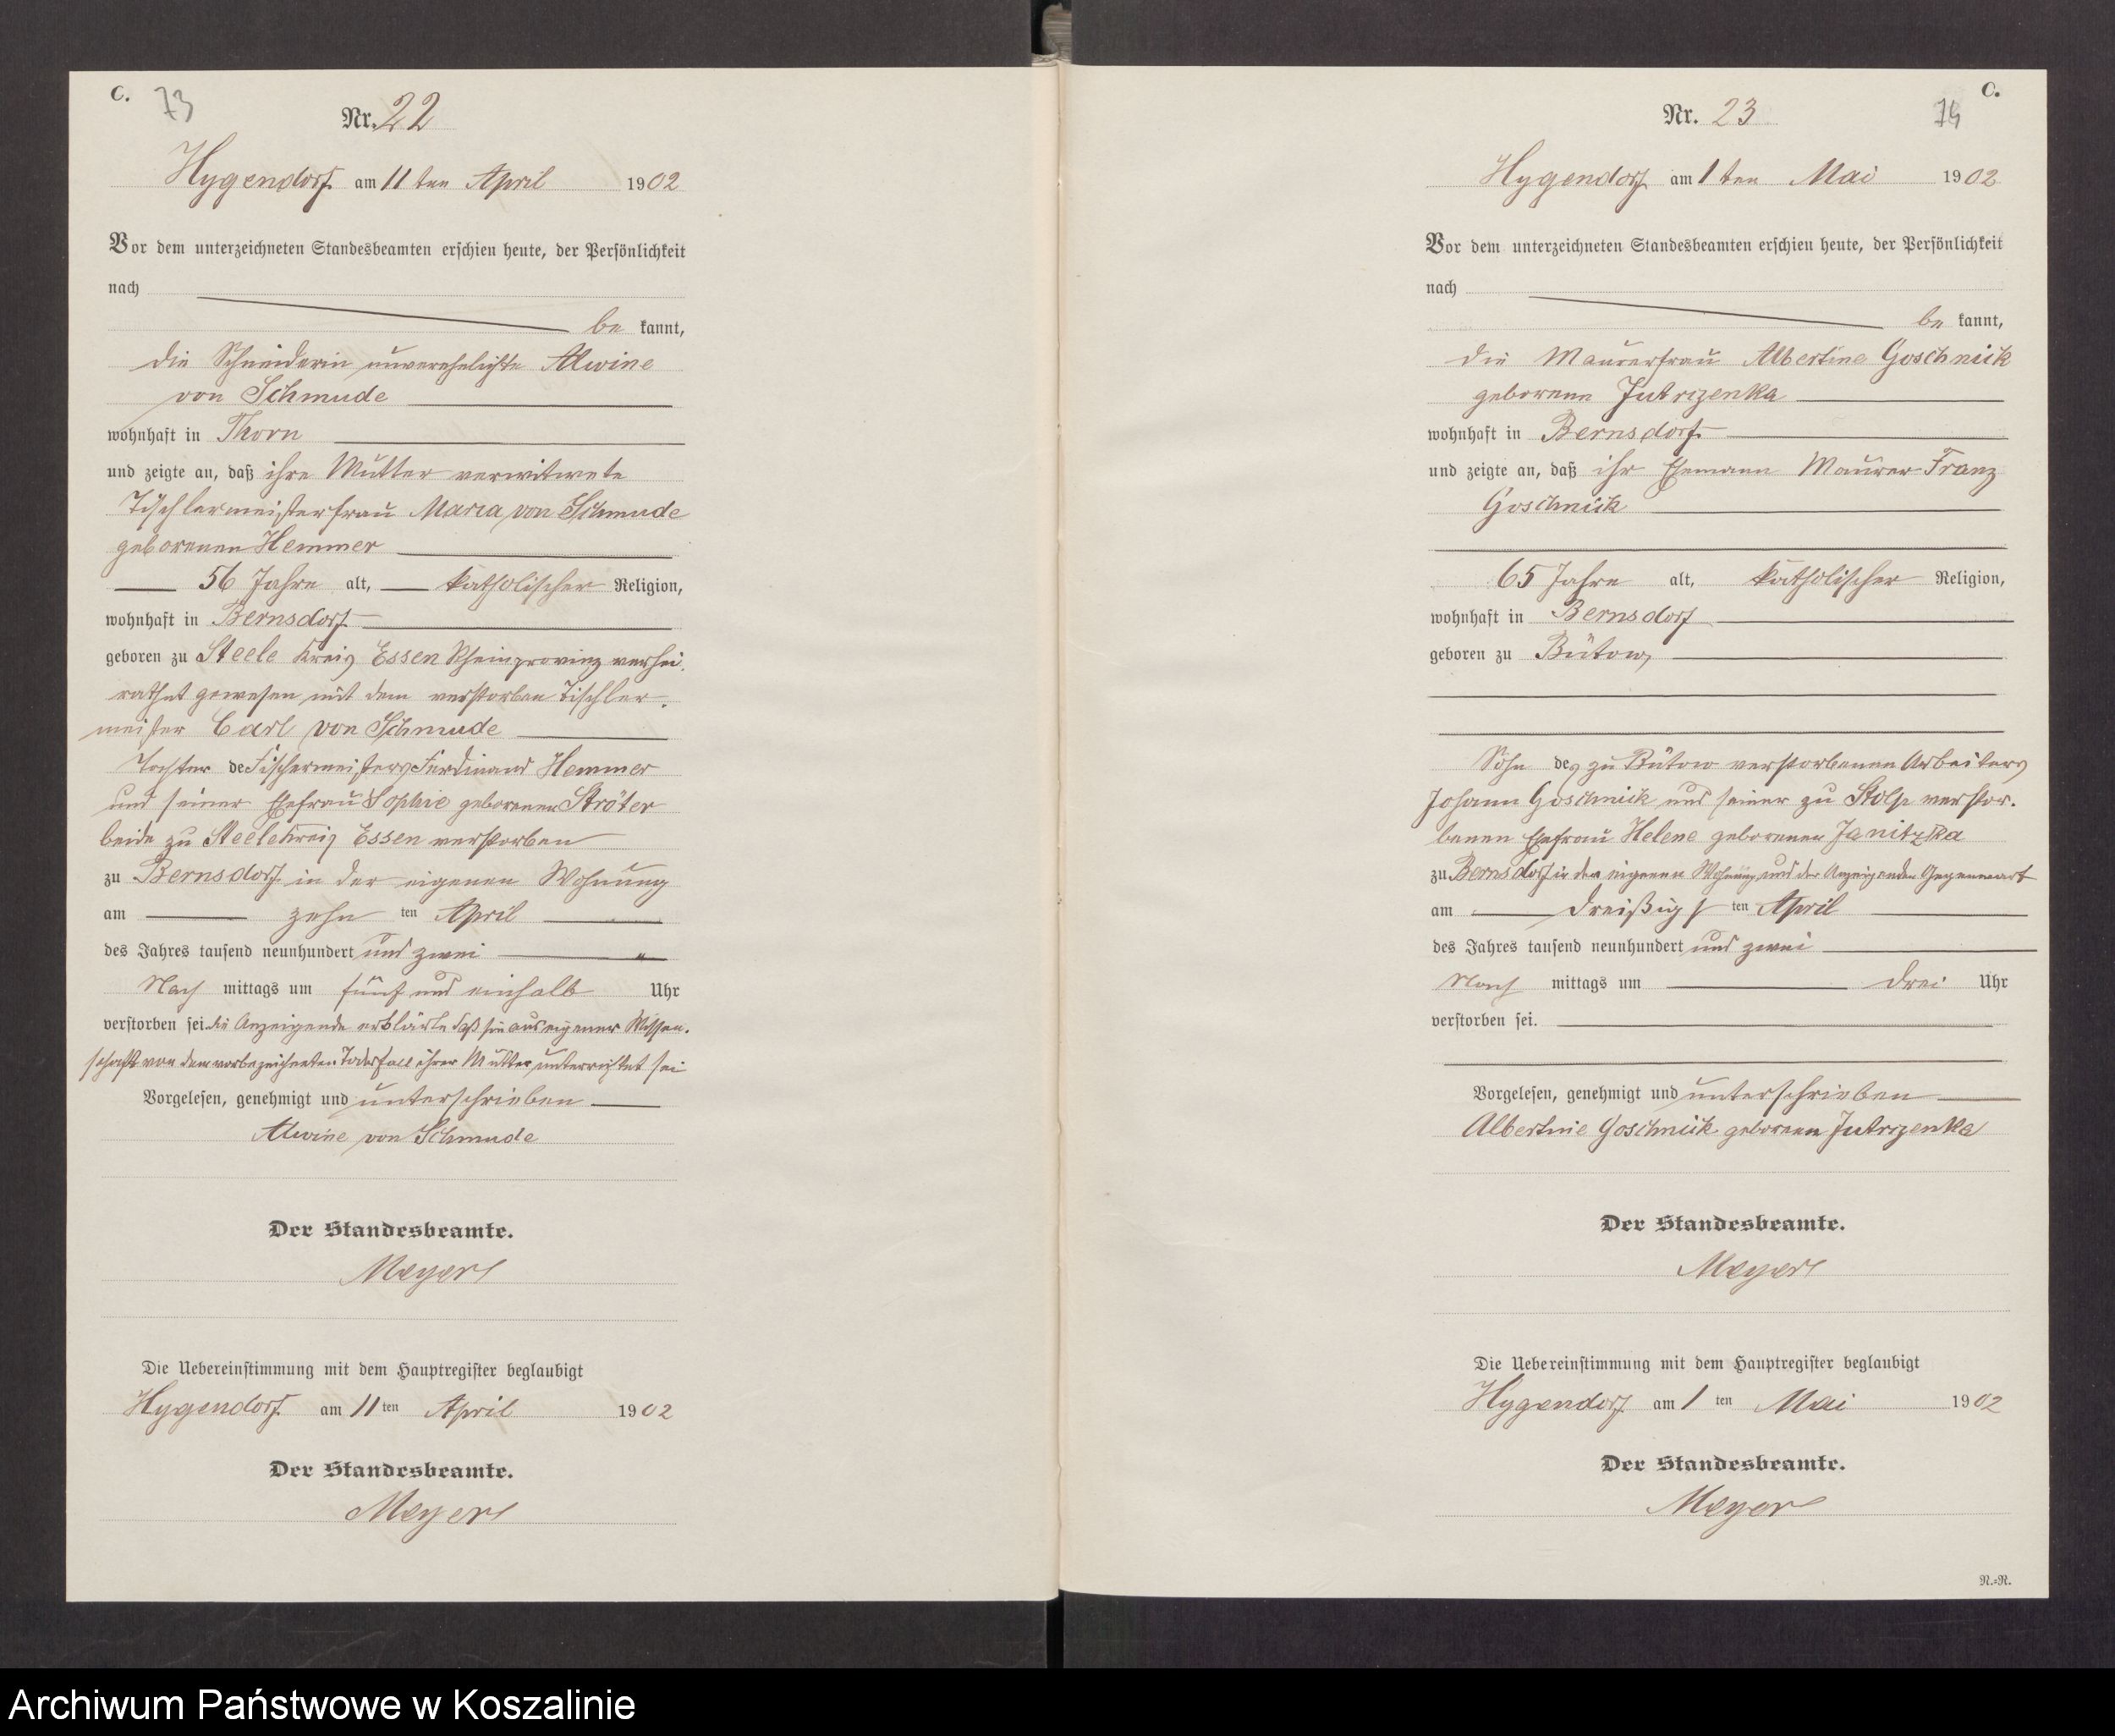 C.
73
Nr. 22
Hygendorf am 11 ten April 1902
Vor dem unterzeichneten Standesbeamten erschien heute, der Persönlichkeit
nach
be kannt,
die Schneiderin unverehelichte Alwine
von Schmude
wohnhaft in Thorn
und zeigte an, daß ihre Mutter verwitwete
Tischlermeisterfrau Maria von Schmude
geborenen Hemmer
56 Jahre alt, katholischer Religion,
wohnhaft in Bernsdorf
geboren zu Steele Kreis Essen Rheinprovinz verhei-
rathet gewesen mit dem verstorben Tischler-
meister Carl von Schmude
Tochter des Fischermeisters Ferdinand Hemmer
und seiner Ehefrau Sophie geborenen Ströter
beide zu Steele Kreis Essen verstorben
zu Bernsdorf in der eigenen Wohnung
am zehn ten April
des Jahres tausend neunhundert und zwei
Nach mittags um fünf und einhalb Uhr
verstorben sei. die Anzeigende erklärte daß sie aus eigener Wissen-
schaft von dem vorbezeichneten Todesfall ihrer Mutter unterrichtet sei
Vorgelesen, genehmigt und unterschrieben
Alwine von Schmude
Der Standesbeamte.
Meyer
Die Uebereinstimmung mit dem Hauptregister beglaubigt
Hygendorf am 11 ten April 1902
Der Standesbeamte.
Meyer
C.
74
Nr. 23
Hygendorf am 1 ten Mai 1902
Vor dem unterzeichneten Standesbeamten erschien heute, der Persönlichkeit
nach
be kannt,
die Maurerfrau Albertine Goschnick
geborene Jutrzenka
wohnhaft in Bernsdorf
und zeigte an, daß ihr Ehemann Maurer Franz
Goschnick
65 Jahre alt, katholischer Religion,
wohnhaft in Bernsdorf
geboren zu Bütow,
Sohn des zu Bütow verstorbenen Arbeiters
Johann Goschnick und seiner zu Stolp verstor-
benen Ehefrau Helene geborenen Janitzka
zu Bernsdorf in der eigenen Wohnung und der Anzeigenden Gegenwart
am dreißigs ten April
des Jahres tausend neunhundert und zwei
Nach mittags um drei Uhr
verstorben sei.
Vorgelesen, genehmigt und unterschrieben
Albertine Goschnick geborene Jutrzenka
Der Standesbeamte.
Meyer
Die Uebereinstimmung mit dem Hauptregister beglaubigt
Hygendorf am 1 ten Mai 1902
Der Standesbeamte.
Meyer
N.=N.
Archiwum Państwowe w Koszalinie